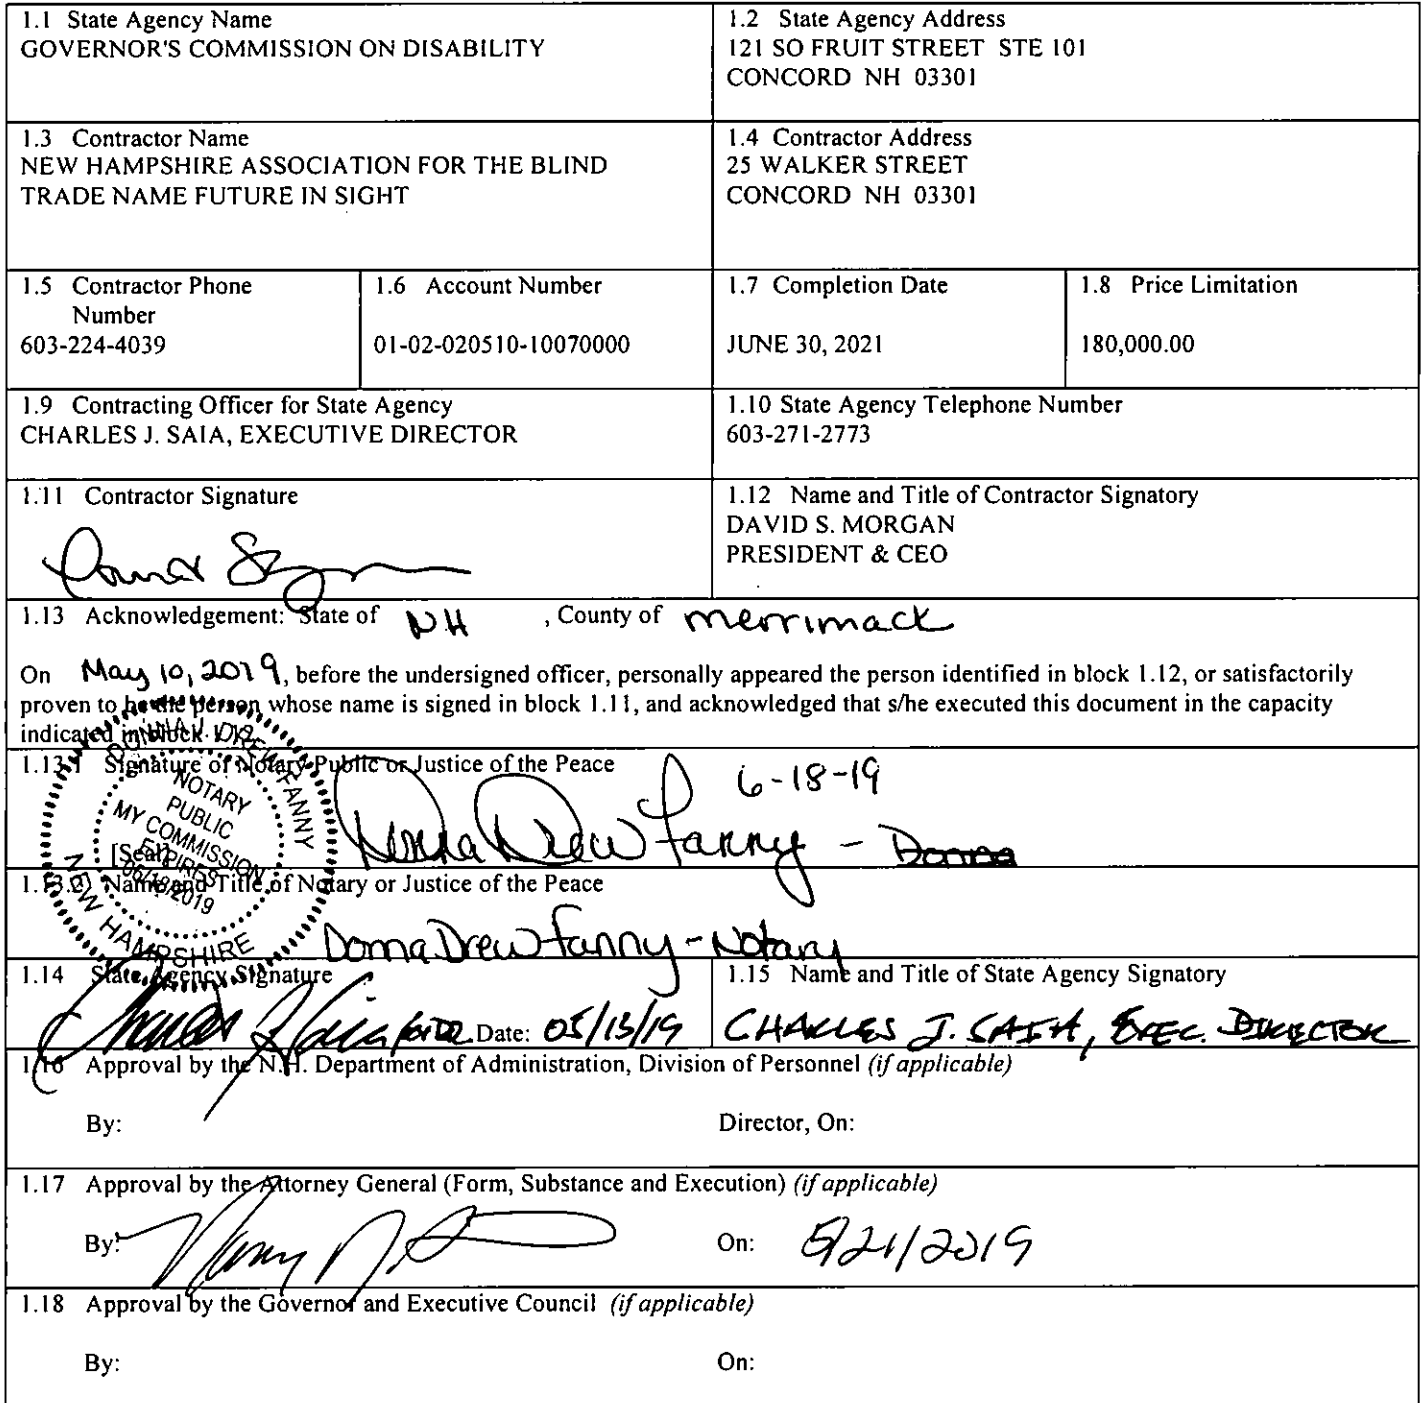 1.1 State Agency Name
GOVERNOR'S COMMISSION ON DISABILITY
1.2 State Agency Address
121 SO FRUIT STREET STE 101
CONCORD NH 03301
1.3 Contractor Name
NEW HAMPSHIRE ASSOCIATION FOR THE BLIND
TRADE NAME FUTURE IN SIGHT
1.4 Contractor Address
25 WALKER STREET
CONCORD NH 03301
1.5 Contractor Phone
Number
603-224-4039
1.6 Account Number
01-02-020510-10070000
1.7 Completion Date
JUNE 30, 2021
1.8 Price Limitation
180,000.00
1.9 Contracting Officer for State Agency
CHARLES J. SAIA, EXECUTIVE DIRECTOR
1.10 State Agency Telephone Number
603-271-2773
1.11 Contractor Signature
1.12 Name and Title of Contractor Signatory
DAVID S. MORGAN
PRESIDENT & CEO
1.13 Acknowledgement: State of NH , County of Merrimack
On May 10, 2019, before the undersigned officer, personally appeared the person identified in block 1.12, or satisfactorily
proven to be the person whose name is signed in block 1.11, and acknowledged that s/he executed this document in the capacity
indicated in block 1.12.
1.13.1 Signature of Notary Public or Justice of the Peace
6-18-19
Donna Drew Fanny - Donna
[Seal]
DONNA J. DREW FANNY
NOTARY
PUBLIC
MY COMMISSION
EXPIRES
06/18/2019
NEW HAMPSHIRE
1.13.2 Name and Title of Notary or Justice of the Peace
Donna Drew Fanny - Notary
1.14 State Agency Signature
Date: 05/13/19
1.15 Name and Title of State Agency Signatory
CHARLES J. SAIA, EXEC. DIRECTOR
1.16 Approval by the N.H. Department of Administration, Division of Personnel (if applicable)
By:
Director, On:
1.17 Approval by the Attorney General (Form, Substance and Execution) (if applicable)
By:
On: 5/21/2019
1.18 Approval by the Governor and Executive Council (if applicable)
By:
On: